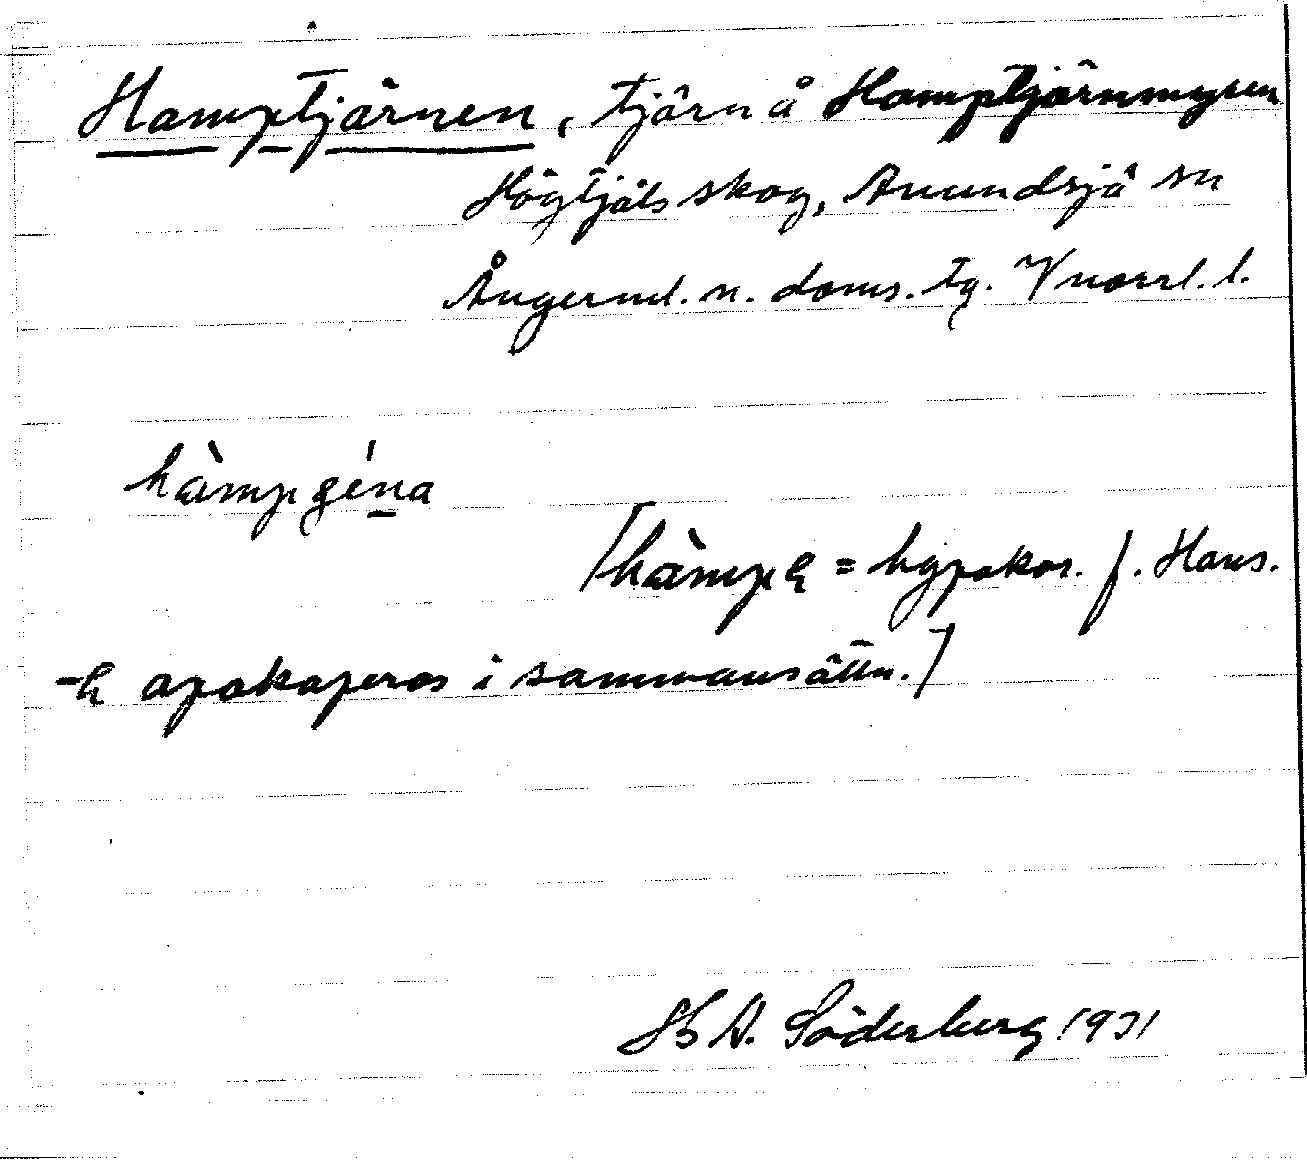 Hamptjärnen, tjärn å Hamptjärnmyren
Högtjäls skog, Anundsjö sn
Ångerml. n. doms. tg. Vnorrl. l.
hàmpgéna
[hàmpe = hypokor. f. Hans.
-e apokoperas i sammansättn.]
H A. Söderberg 1931